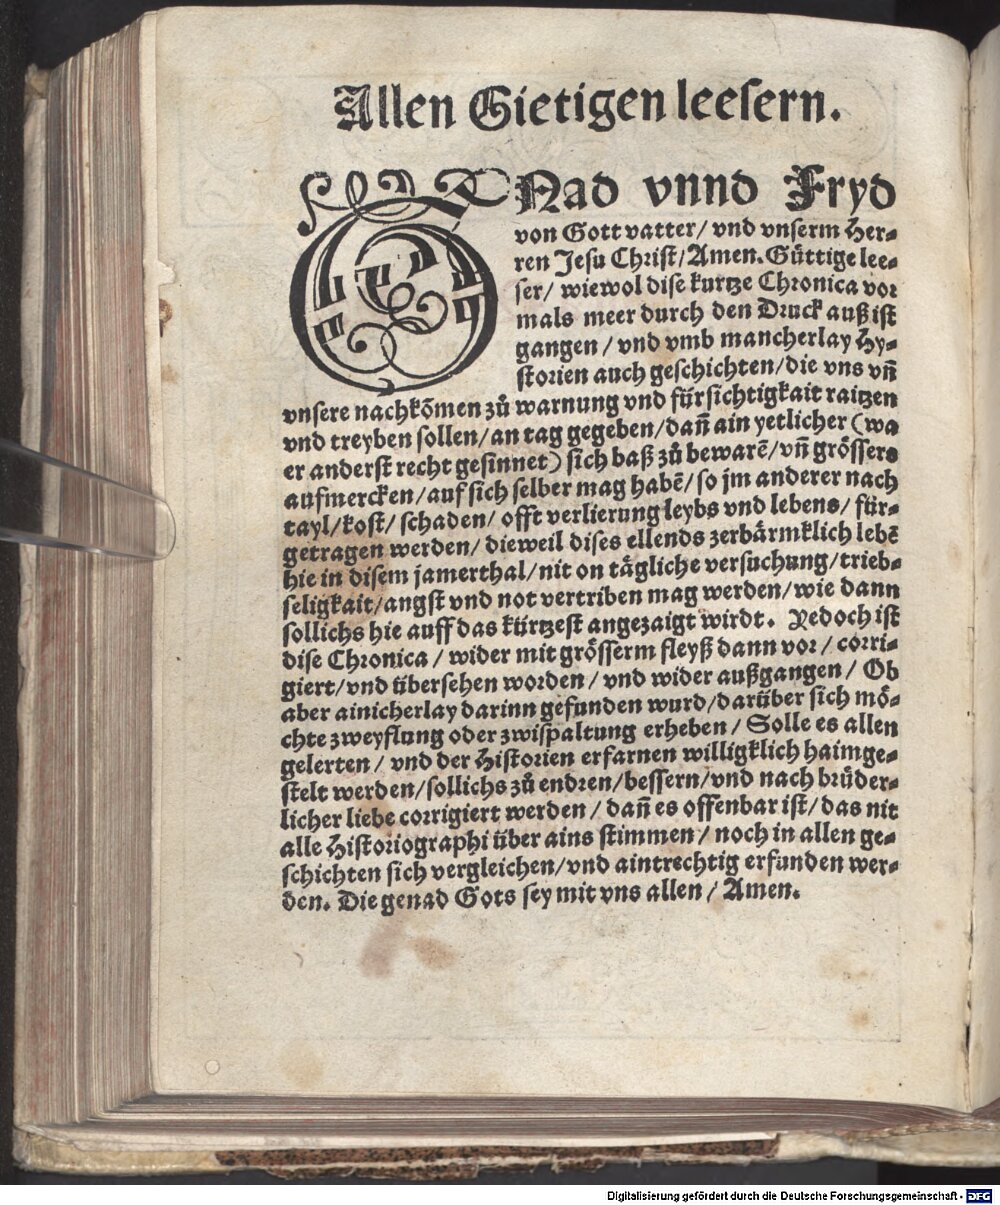 Allen Gietigen leesern.
GNad vnnd Fryd
von Gott vatter/ vnd vnserm Her⸗
ren Jesu Christ/ Amen. Güttige lee⸗
ser/ wiewol dise kurtze Chronica vor
mals meer durch den Druck außist
gangen / vnd vmb mancherlay Hy⸗
storien auch geschichten/die vns vñ
vnsere nachkõmen zů warnung vnd fürsichtigkait raitzen
vnd treyben sollen/an tag gegeben/dañ ain yetlicher (wa
er anderst recht gesinnet) sich baß zů bewarẽ/vñ grössers
aufmercken/auf sich selber mag habẽ/ so jm anderer nach
tayl/kost/ schaden/ offt verlierung leybs vnd lebens/ für⸗
getragen werden/ dieweil dises ellends zerbärmklich lebẽ
hie in disem jamerthal/nit on tägliche versuchung/trieb⸗
seligkait/angst vnd not vertriben mag werden/wie dann
sollichs hie auff das kürtzest angezaigt wirdt. Yedoch ist
dise Chronica / wider mit grösserm fleyß dann vor / corri⸗
giert/vnd übersehen worden/ vnd wider außgangen/ Ob
aber ainicherlay darinn gefunden wurd/darüber sich mö⸗
chte zweyflung oder zwispaltung erheben / Solle es allen
gelerten / vnd der Historien erfarnen willigklich haimge⸗
stelt werden/sollichs zů endren/bessern/vnd nach brüder⸗
licher liebe corrigiert werden / dañ es offenbar ist/ das nit
alle Historiographi über ains stimmen / noch in allen ge⸗
schichten sich vergleichen/vnd aintrechtig erfunden wer⸗
den. Die genad Gots sey mit vns allen / Amen.
Digitalisierung gefördert durch die Deutsche Forschungsgemeinschaft - DFG